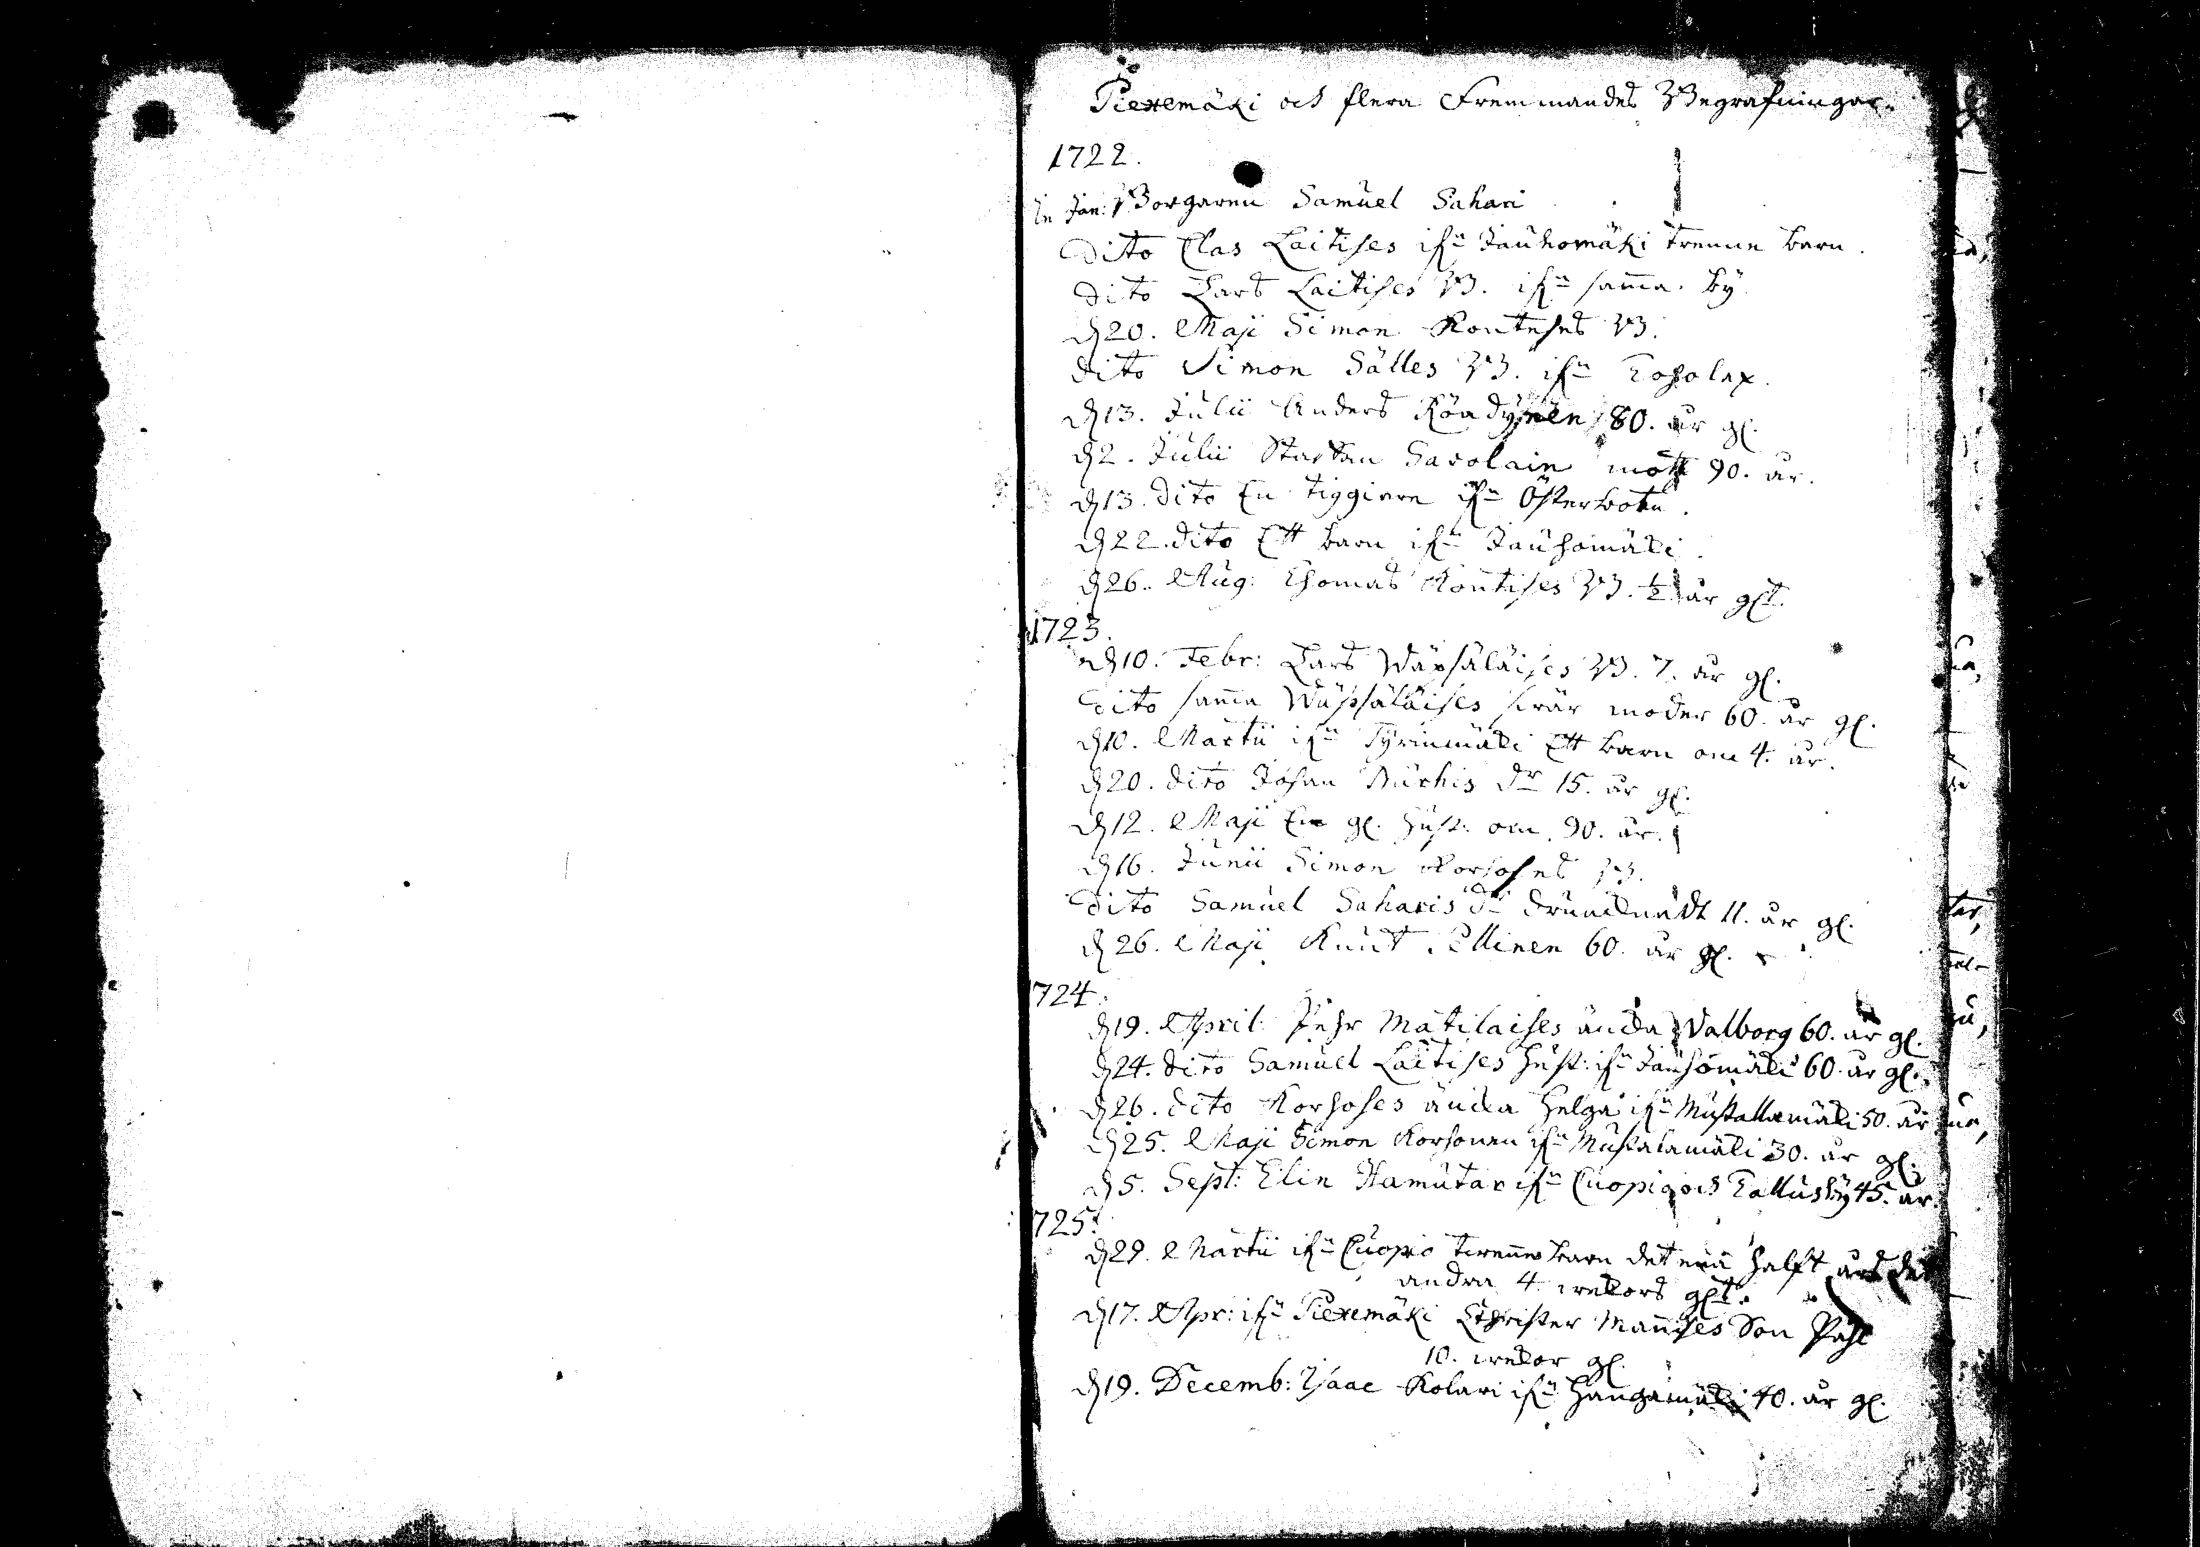 Piexemäki och flera Fremmandes Begrafningar.
1722.
in Jan: Borgaren Samuel Sahari
Dito Clas Laitises ifrn Jauhomäki trenne barn.
dito Lars Laitises B. ifrn samma by
d 20. Maji Simon Kontises B.
dito Simon Sälles B. ifrn
d 13. Julii Anders 80. år gl.
d 2. Julii Staffan Savolain mott 90. år.
d 13. dito En tiggiare ifrn Österbotn.
d 22. dito Ett barn ifrn Jauhomäki.
d 26. Aug: Thomas Kontises B. ½ år glt.
1723.
d 10. Febr: Lars Wäpsäläises B. 7. år gl.
dito samma Wäpsäläises swär moder 60. år gl.
d 10. Martii ifrn Tyrinmäki Ett barn om 4. år.
d 20. dito Johan dr 15. år gl.
d 12. Maji En gl. hust: om 90. år.
d 16. Junii Simon Korhoses B.
dito Samuel Saharis dr druncknadt 11. år gl.
d 26. Maji Knut Pellinen 60. år gl.
1724.
d 19. April: Pehr Matilaises äncka Walborg 60. år gl.
d 24. dito Samuel Laitises hust: ifrn Jauhomäki 60. år gl.
d 26. dito Korhoses äncka Helga ifrn Mustallamäki 50. år
d 25. Maji Simon Korhonen ifrn Mustalamäki 30. år gl.
d 5. Sept: Elin Hamutar ifrn Cuopio och Kallusby 45. år.
1725.
d 29. Martii ifrn Cuopio twenne barn det ena halft års det
andra 4. wekors glt.
d 17. Apr: ifrn Piexemäki Christer Mannises Son Påhl
10. wekor gl.
d 19. Decemb: Isaac Kolari ifrn Hangamäki 40. år gl.